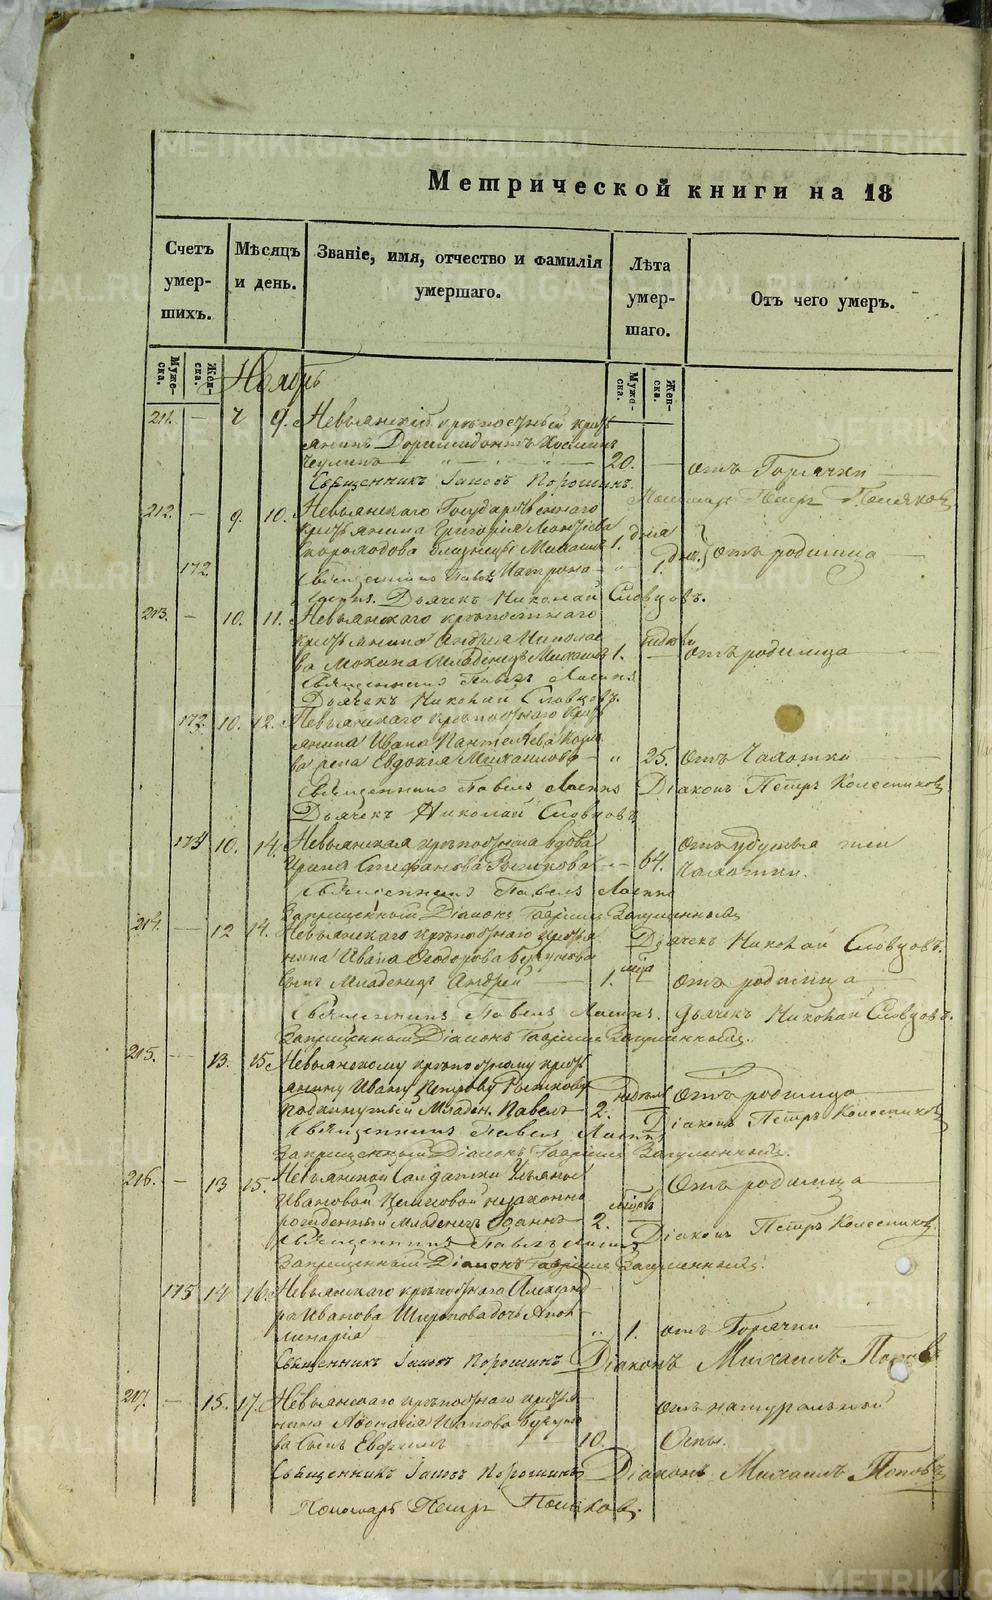 Метрической книги на 18
Счетъ умер- шихъ.
Мѣсяцъ и день.
Званіе, имя, отчество и фамилія умершаго.
Лѣта умер- шаго.
Отъ чего умеръ.
Муже- ска.
Жен- ска.
Ноябрь
Муже- ска.
Жен- ска.
211. — 7 9. Невьянскій крѣпостный кресть
янинъ Доримидонтъ
20. — отъ Горячки
Священникъ Іаковъ Порошинъ
Пономарь Петръ Поляковъ
212. — 9. 10. Невьянскаго Государственнаго
крестьянина Григорія Леонтьева
Скороходова близнецы Михаилъ 1. дня
172. Матрона — " 1. дня. отъ родимца
Священникъ Павелъ
Дьячекъ Николай Словцовъ.
213. — 10. 11. Невьянскаго крѣпостнаго
крестьянина Андрея Николае
ва Мокина Младенецъ Михаилъ 1. — отъ родимца
Священникъ Павелъ
Дьячекъ Николай Словцовъ.
173. 10. 12. Невьянскаго крѣпостнаго кресть
янина Ивана Пантелѣева
жена Евдокія Михайлова — " 25. отъ Чахотки
Священникъ Павелъ
Діаконъ Петръ Колесниковъ
Дьячекъ Николай Словцовъ
174 10. 14. Невьянская крѣпостная вдова
Ирина Стефанова — 64. отъ удушья или
Чахотки.
Священникъ Павелъ
Запрещенный Діаконъ Гавріилъ
214. — 12 14. Невьянскаго крѣпостнаго крестья
Дьячекъ Николай Словцовъ.
нина Ивана Ѳеодорова
сынъ Младенецъ Андрей — 1. отъ родимца
Священникъ Павелъ
Дьячекъ Николай Словцовъ.
Запрещенный Діаконъ Гавріилъ
215. — 13. 15. Невьянскому крѣпостному кресть
янину Ивану Петрову
подкинутый Младен. Павелъ — 2. недѣль отъ родимца
Священникъ Павелъ
Діаконъ Петръ Колесниковъ
Запрещенный Діаконъ Гавріилъ
216. — 13 15. Невьянской Салдатки Ульяны
Ивановой незаконно
рожденный Младенецъ Іоаннъ — 2. отъ родимца
Священникъ Павелъ
Діаконъ Петръ Колесниковъ
Запрещенный Діаконъ Гавріилъ
175 14 16. Невьянскаго крѣпостнаго Александ
ра Иванова дочь Апол
линарія — " 1. отъ Горячки
Священникъ Іаковъ Порошинъ Діаконъ Михаилъ Поповъ
217. — 15. 17. Невьянскаго крѣпостнаго крестья
нина Аѳонасія
ва Сынъ Евфимъ 10. отъ натуральной
Оспы.
Священникъ Іаковъ Порошинъ Діаконъ Михаилъ Поповъ
Пономарь Петръ Поляковъ.
METRIKI.GASO-URAL.RU